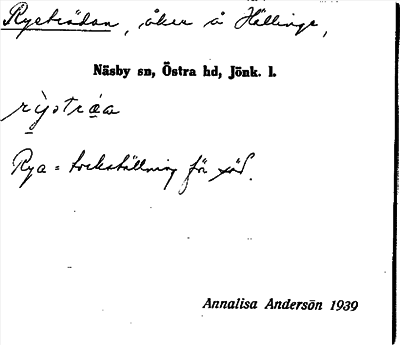 Ryeträdan, åker å Hällinge,
Näsby sn, Östra hd, Jönk. l.
Rya = torkställning för säd.
Annalisa Andersön 1939